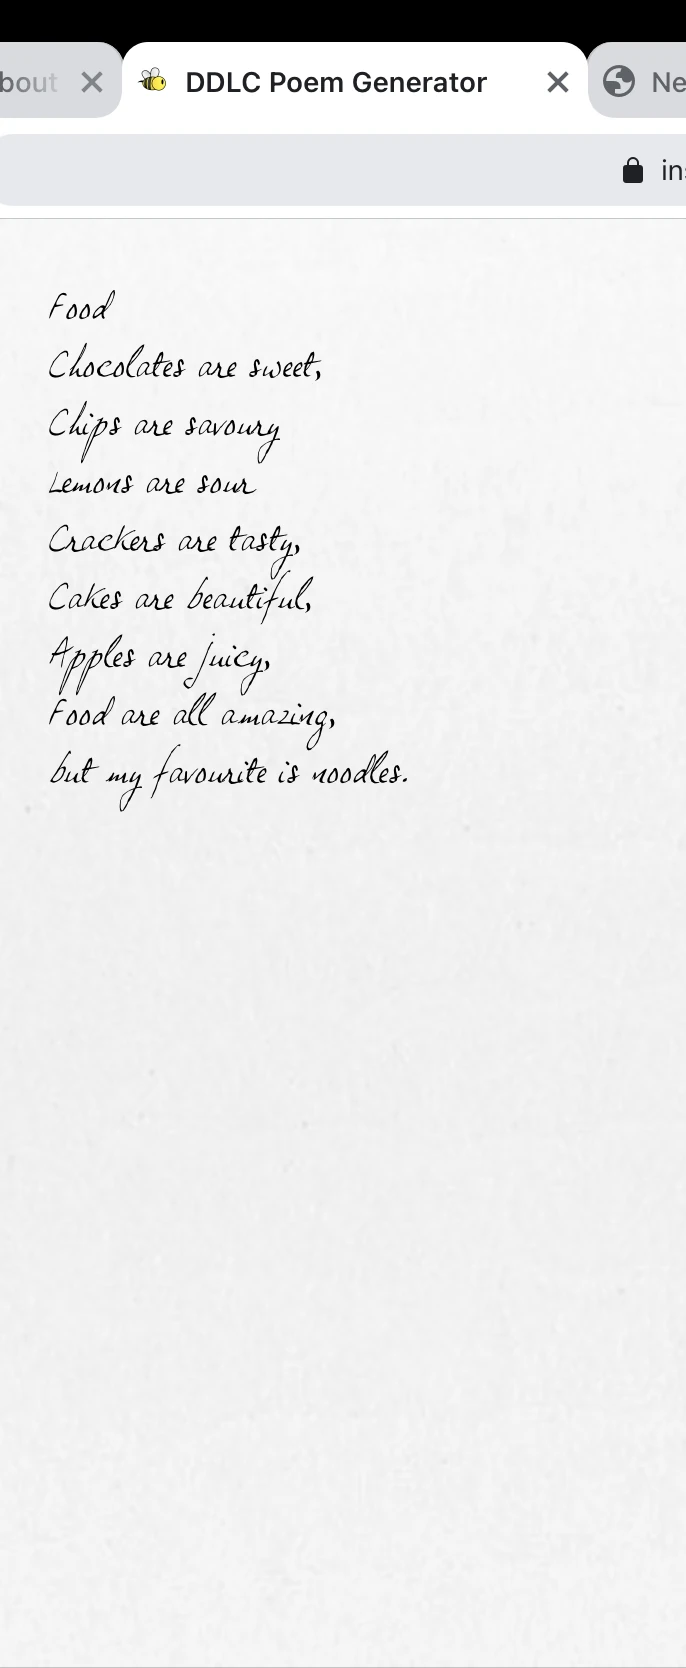 bout
DDLC Poem Generator
Ne
in
Food
Chocolates are sweet,
Chips are savoury
Lemons are sour
Crackers are tasty,
Cakes are beautiful,
Apples are juicy,
Food are all amazing,
but my favourite is noodles.